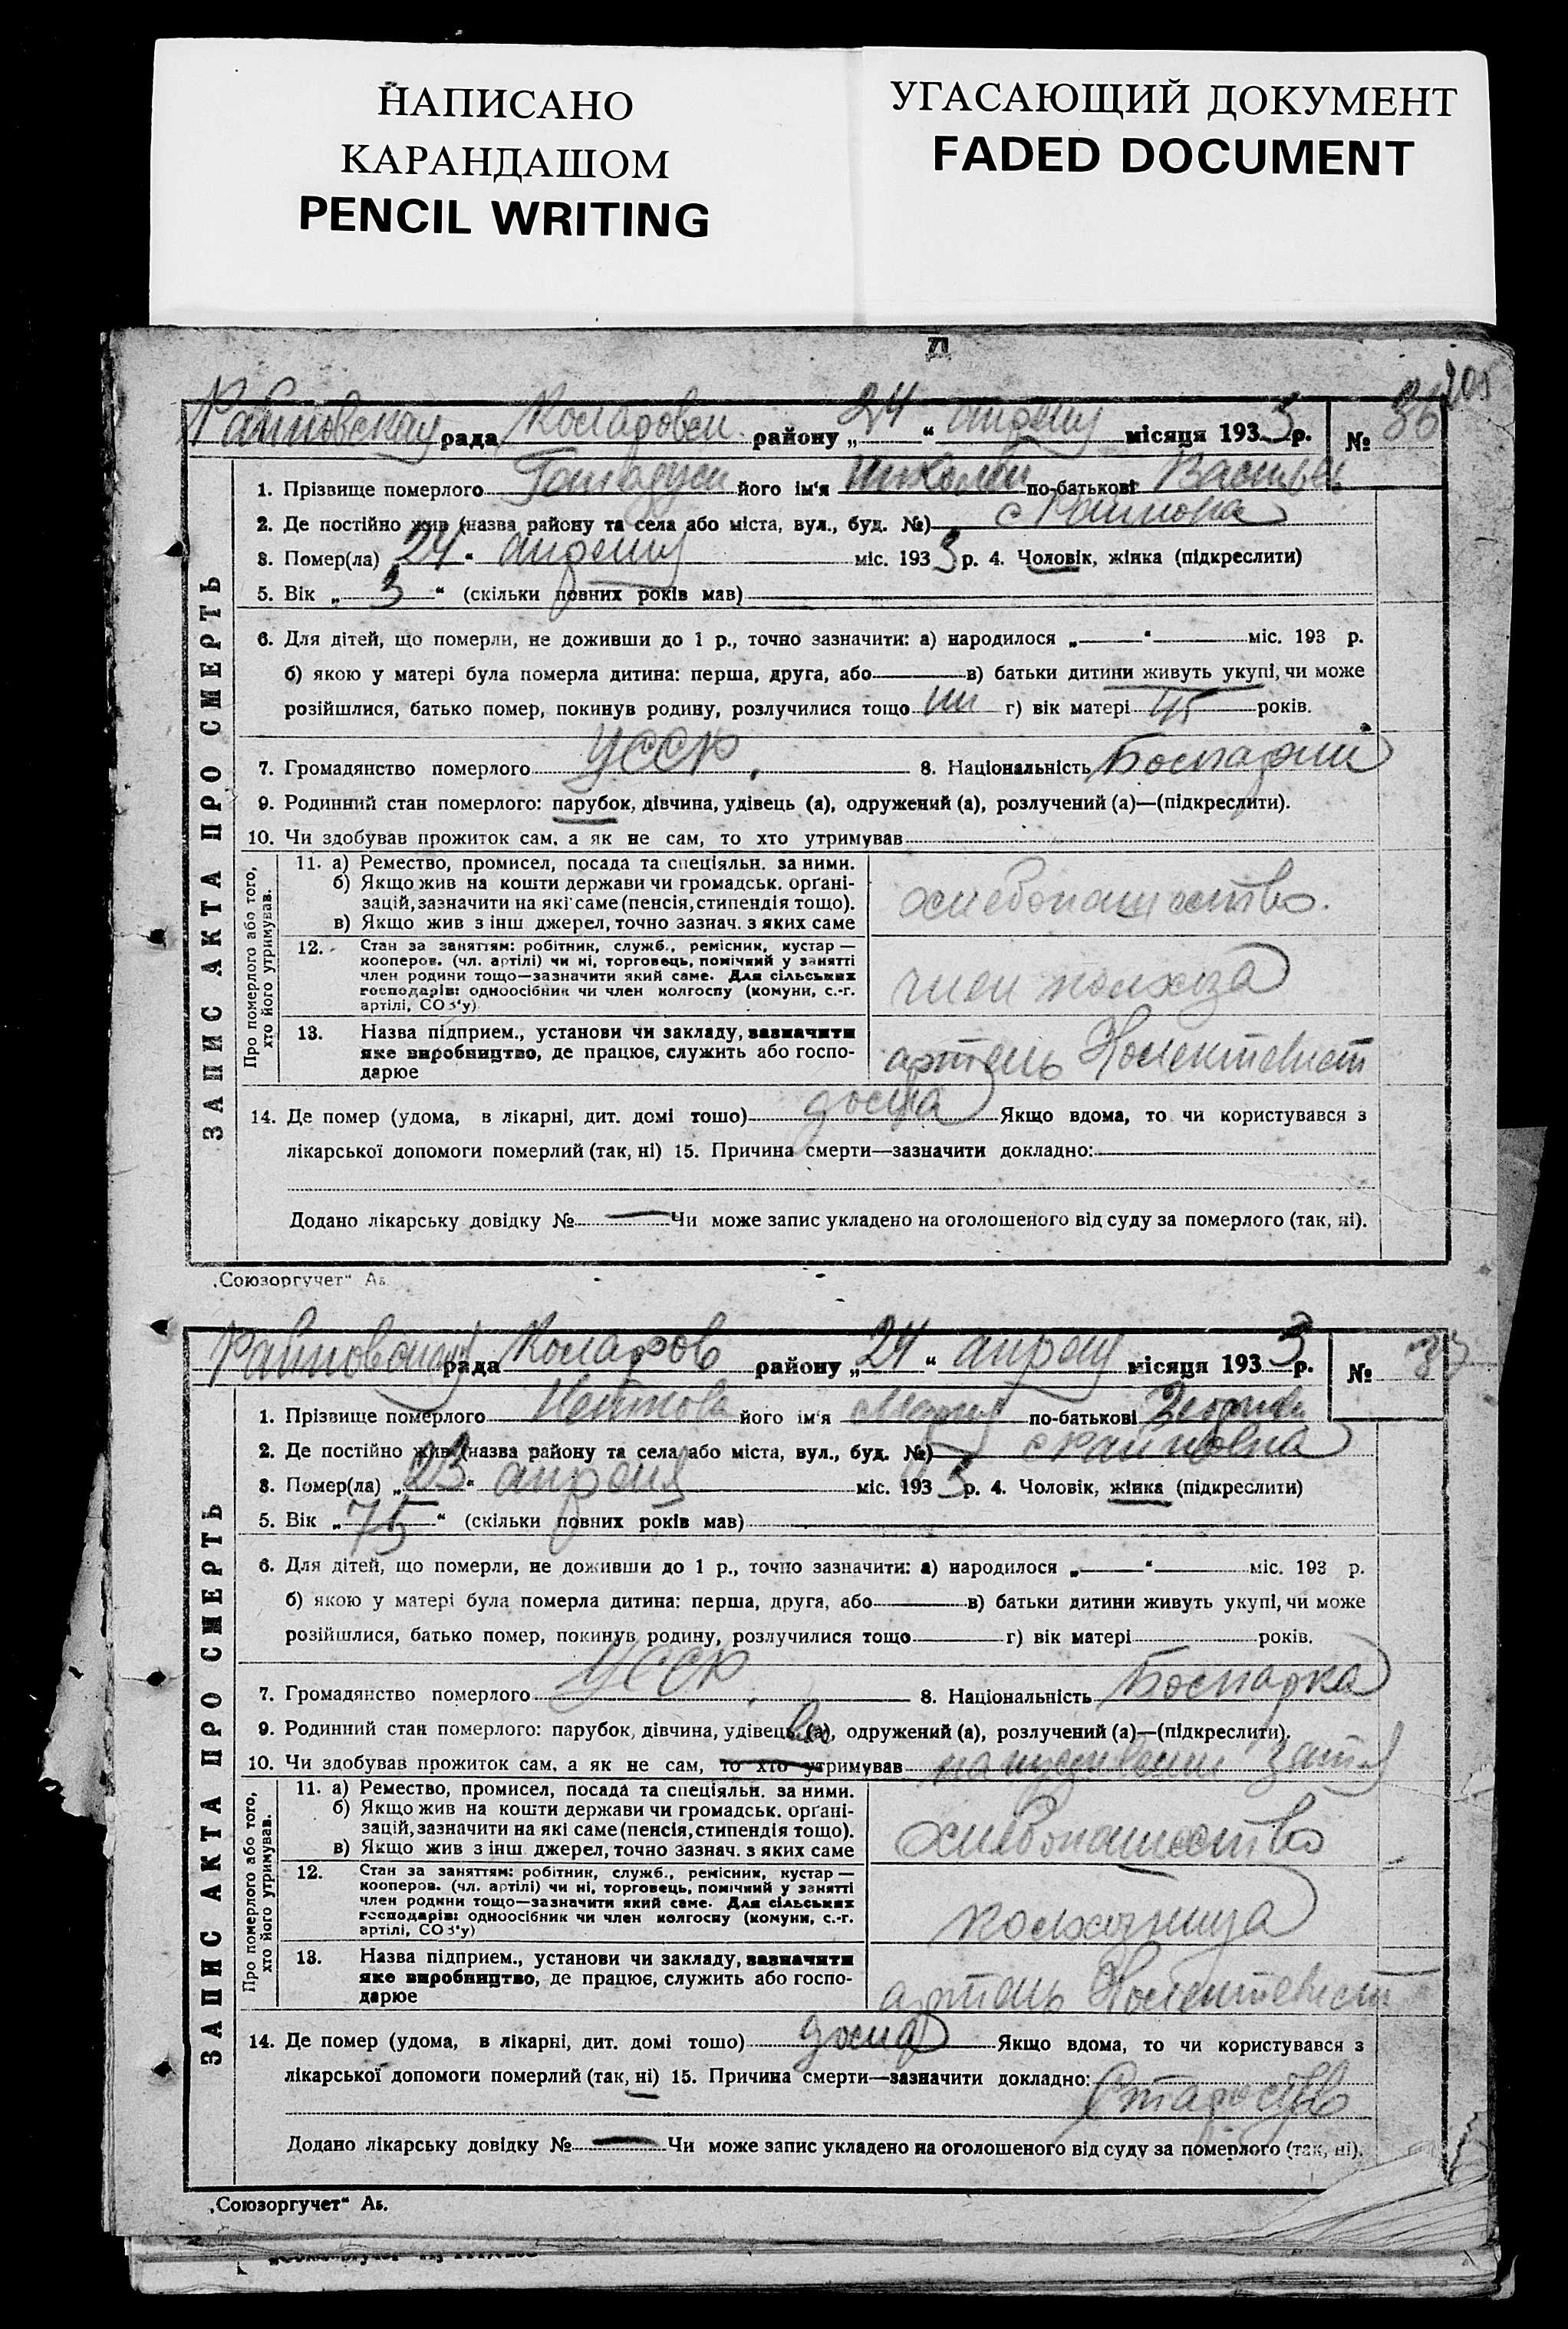 НАПИСАНО
КАРАНДАШОМ
PENCIL WRITING
УГАСАЮЩИЙ ДОКУМЕНТ
FADED DOCUMENT
ЗАПИС АКТА ПРО СМЕРТЬ
Райновская рада Коларовск району „24“ апреля місяця 1933 р. № 36
1. Прізвище померлого його ім'я Николай по-батькові Василь
2. Де постійно жив (назва району та села або міста, вул., буд. №) с
3. Помер(ла) „24“ апреля міс. 1933 р. 4. Чоловік, жінка (підкреслити)
5. Вік „3“ (скільки повних років мав)
6. Для дітей, що померли, не доживши до 1 р., точно зазначити: а) народилося „—“ — міс. 193 р.
б) якою у матері була померла дитина: перша, друга, або — в) батьки дитини живуть укупі, чи може
розійшлися, батько помер, покинув родину, розлучилися тощо г) вік матері 45 років.
7. Громадянство померлого УССР. 8. Національність
9. Родинний стан померлого: парубок, дівчина, удівець (а), одружений (а), розлучений (а)—(підкреслити).
10. Чи здобував прожиток сам, а як не сам, то хто утримував
Про померлого або того, хто його утримував.
11. а) Ремество, промисел, посада та спеціяльн. за ними.
б) Якщо жив на кошти держави чи громадськ. орґані-
зацій, зазначити на які саме (пенсія, стипендія тощо).
в) Якщо жив з інш джерел, точно зазнач. з яких саме
хлебопашество.
12. Стан за заняттям: робітник, служб., ремісник, кустар —
кооперов. (чл. артілі) чи ні, торговець, помічний у занятті
член родини тощо—зазначити який саме. Для сільських
господарів: одноосібник чи член колгоспу (комуни, с.-г.
артілі, СОЗ'у).
член колхоза
13. Назва підприєм., установи чи закладу, зазначити
яке виробництво, де працює, служить або госпо-
дарює
артель Колективист
14. Де помер (удома, в лікарні, дит. домі тощо) дома Якщо вдома, то чи користувався з
лікарської допомоги померлий (так, ні) 15. Причина смерти—зазначити докладно:
Додано лікарську довідку № — Чи може запис укладено на оголошеного від суду за померлого (так, ні).
„Союзоргучет“
ЗАПИС АКТА ПРО СМЕРТЬ
рада Коларов району „24“ апреля місяця 1933 р. № 37
1. Прізвище померлого його ім'я Мария по-батькові
2. Де постійно жив (назва району та села або міста, вул., буд. №) с Райновка
3. Помер(ла) „23“ апреля міс. 1933 р. 4. Чоловік, жінка (підкреслити)
5. Вік „75“ (скільки повних років мав)
6. Для дітей, що померли, не доживши до 1 р., точно зазначити: а) народилося „—“ — міс. 193 р.
б) якою у матері була померла дитина: перша, друга, або — в) батьки дитини живуть укупі, чи може
розійшлися, батько помер, покинув родину, розлучилися тощо — г) вік матері років.
7. Громадянство померлого УССР. 8. Національність Болгарка
9. Родинний стан померлого: парубок, дівчина, удівець (а), одружений (а), розлучений (а)—(підкреслити).
10. Чи здобував прожиток сам, а як не сам, то хто утримував на иждивении зятя
Про померлого або того, хто його утримував.
11. а) Ремество, промисел, посада та спеціяльн. за ними.
б) Якщо жив на кошти держави чи громадськ. орґані-
зацій, зазначити на які саме (пенсія, стипендія тощо).
в) Якщо жив з інш джерел, точно зазнач. з яких саме
хлебопашество
12. Стан за заняттям: робітник, служб., ремісник, кустар —
кооперов. (чл. артілі) чи ні, торговець, помічний у занятті
член родини тощо—зазначити який саме. Для сільських
господарів: одноосібник чи член колгоспу (комуни, с.-г.
артілі, СОЗ'у)
колхозница
13. Назва підприєм., установи чи закладу, зазначити
яке виробництво, де працює, служить або госпо-
дарює
артель Колективист
14. Де помер (удома, в лікарні, дит. домі тощо) дома Якщо вдома, то чи користувався з
лікарської допомоги померлий (так, ні) 15. Причина смерти—зазначити докладно:
Додано лікарську довідку № — Чи може запис укладено на оголошеного від суду за померлого (так, ні).
„Союзоргучет“ Ав.